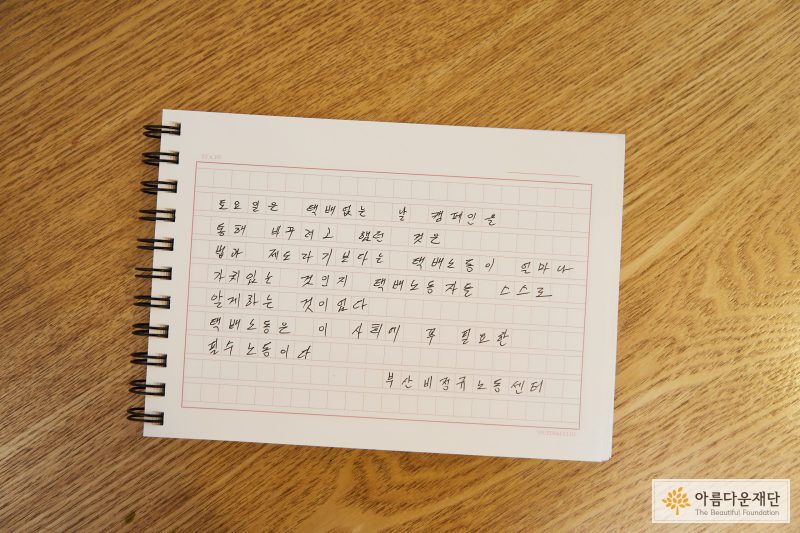 토요일은 택배없는 날 캠페인을
통해 바꾸려고 했던 것은
법과 제도라기보다는 택배노동이 얼마나
가치있는 것인지 택배노동자들 스스로
알게하는 것이었다
택배노동은 이 사회에 꼭 필요한
필수노동이다
부산비정규노동센터
아름다운재단
The Beautiful Foundation